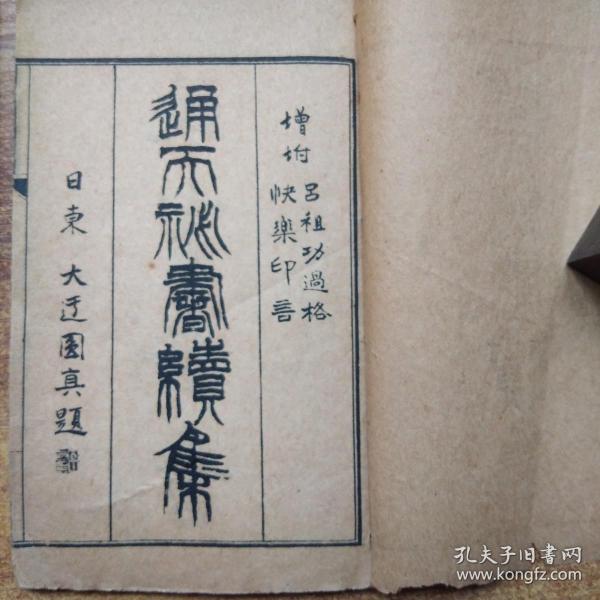 增坿
呂祖功過格
快樂印言
通天祕書續集
日東 大迂圓真題
孔夫子旧书网
www.kongfz.com